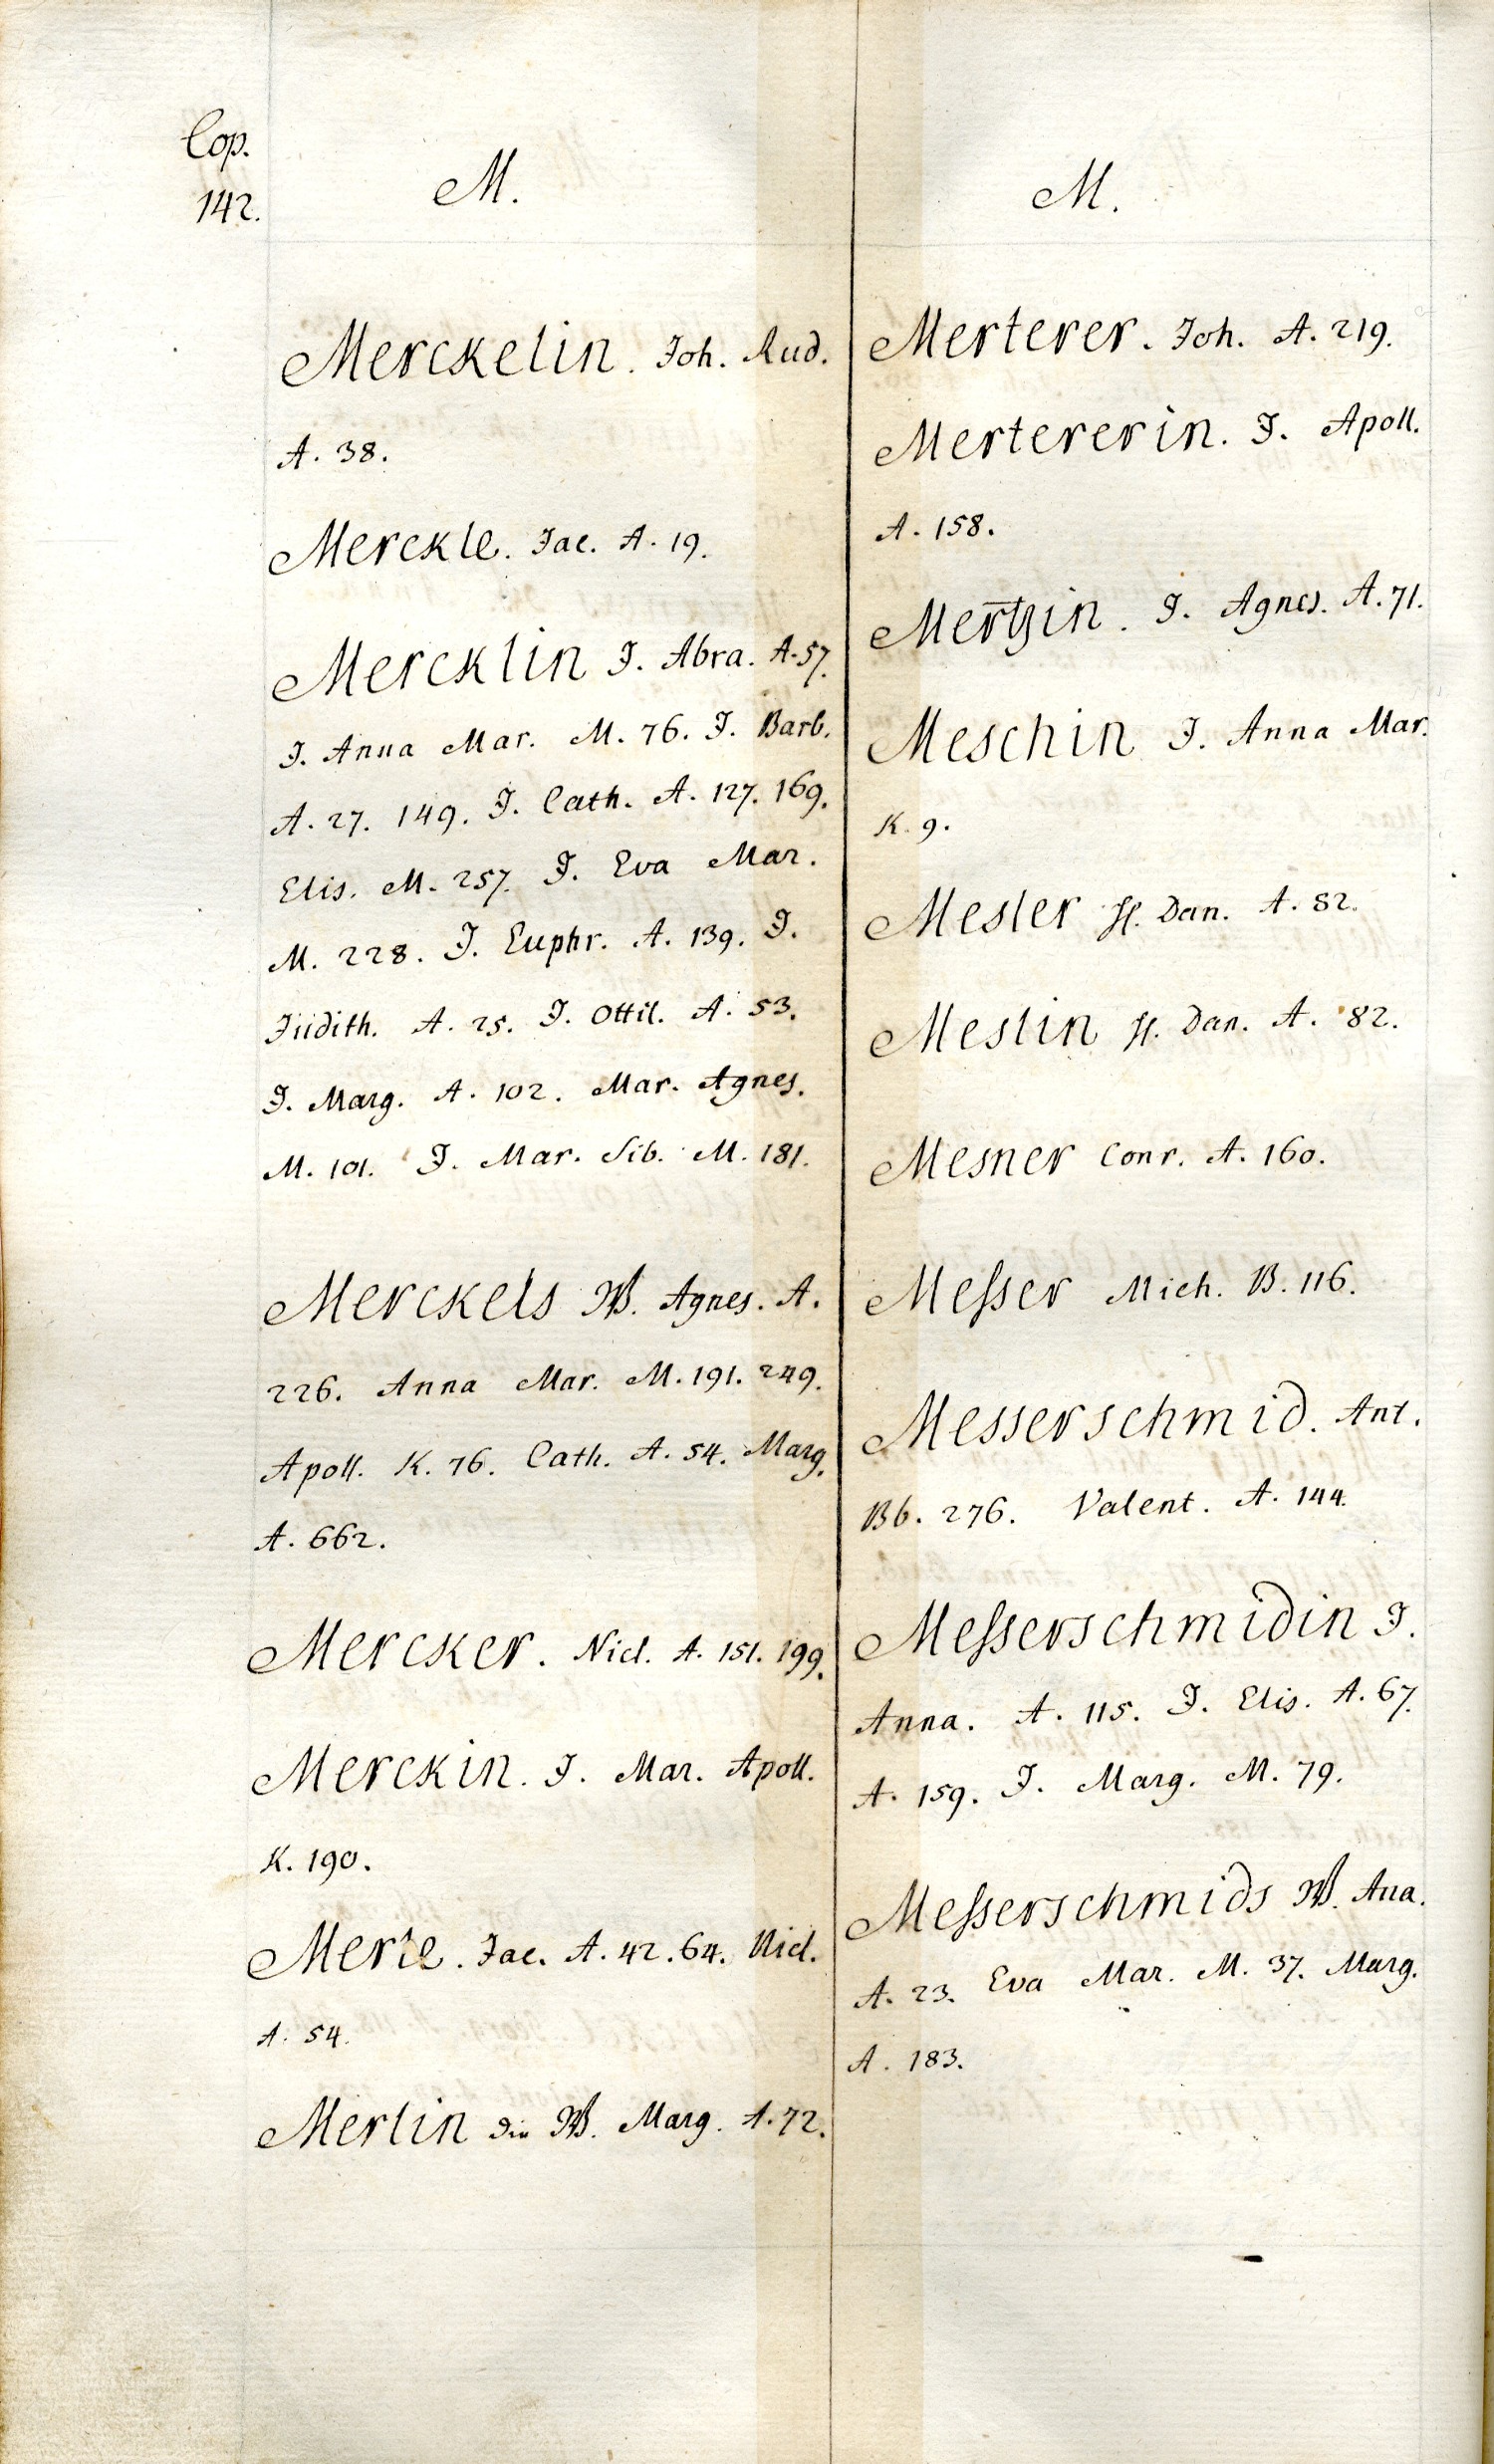 Cop.
142.
M.
Merckelin. Joh. Rud.
A. 38.
Merckle. Jac. A. 19.
Mercklin J. Abra. A. 57.
J. Anna Mar. M. 76. J. Barb.
A. 27. 149. J. Cath. A. 127. 169.
Elis. M. 257. J. Eva Mar.
M. 228. J. Euphr. A. 139. J.
Judith. A. 25. J. Ottil. A. 53.
J. Marg. A. 102. Mar. Agnes.
M. 101. J. Mar. Sib. M. 181.
Merckels W. Agnes. A.
226. Anna Mar. M. 191. 249.
Apoll. K. 76. Cath. A. 54. Marg.
A. 662.
Mercker. Nicl. A. 151. 199.
Merckin. J. Mar. Apoll.
K. 190.
Merle. Jac. A. 42. 64. Nicl.
A. 54.
Merlin die W. Marg. A. 72.
M.
Merterer. Joh. A. 219.
Mertererin. J. Apoll.
A. 158.
Mertzin. J. Agnes. A. 71.
Meschin J. Anna Mar.
K. 9.
Mesler H. Dan. A. 82.
Meslin H. Dan. A. 82.
Mesner Conr. A. 160.
Messer Mich. B. 116.
Messerschmid. Ant.
Bb. 276. Valent. A. 144.
Messerschmidin J.
Anna. A. 115. J. Elis. A. 67.
A. 159. J. Marg. M. 79.
Messerschmids W. Ana.
A. 23. Eva Mar. M. 37. Marg.
A. 183.